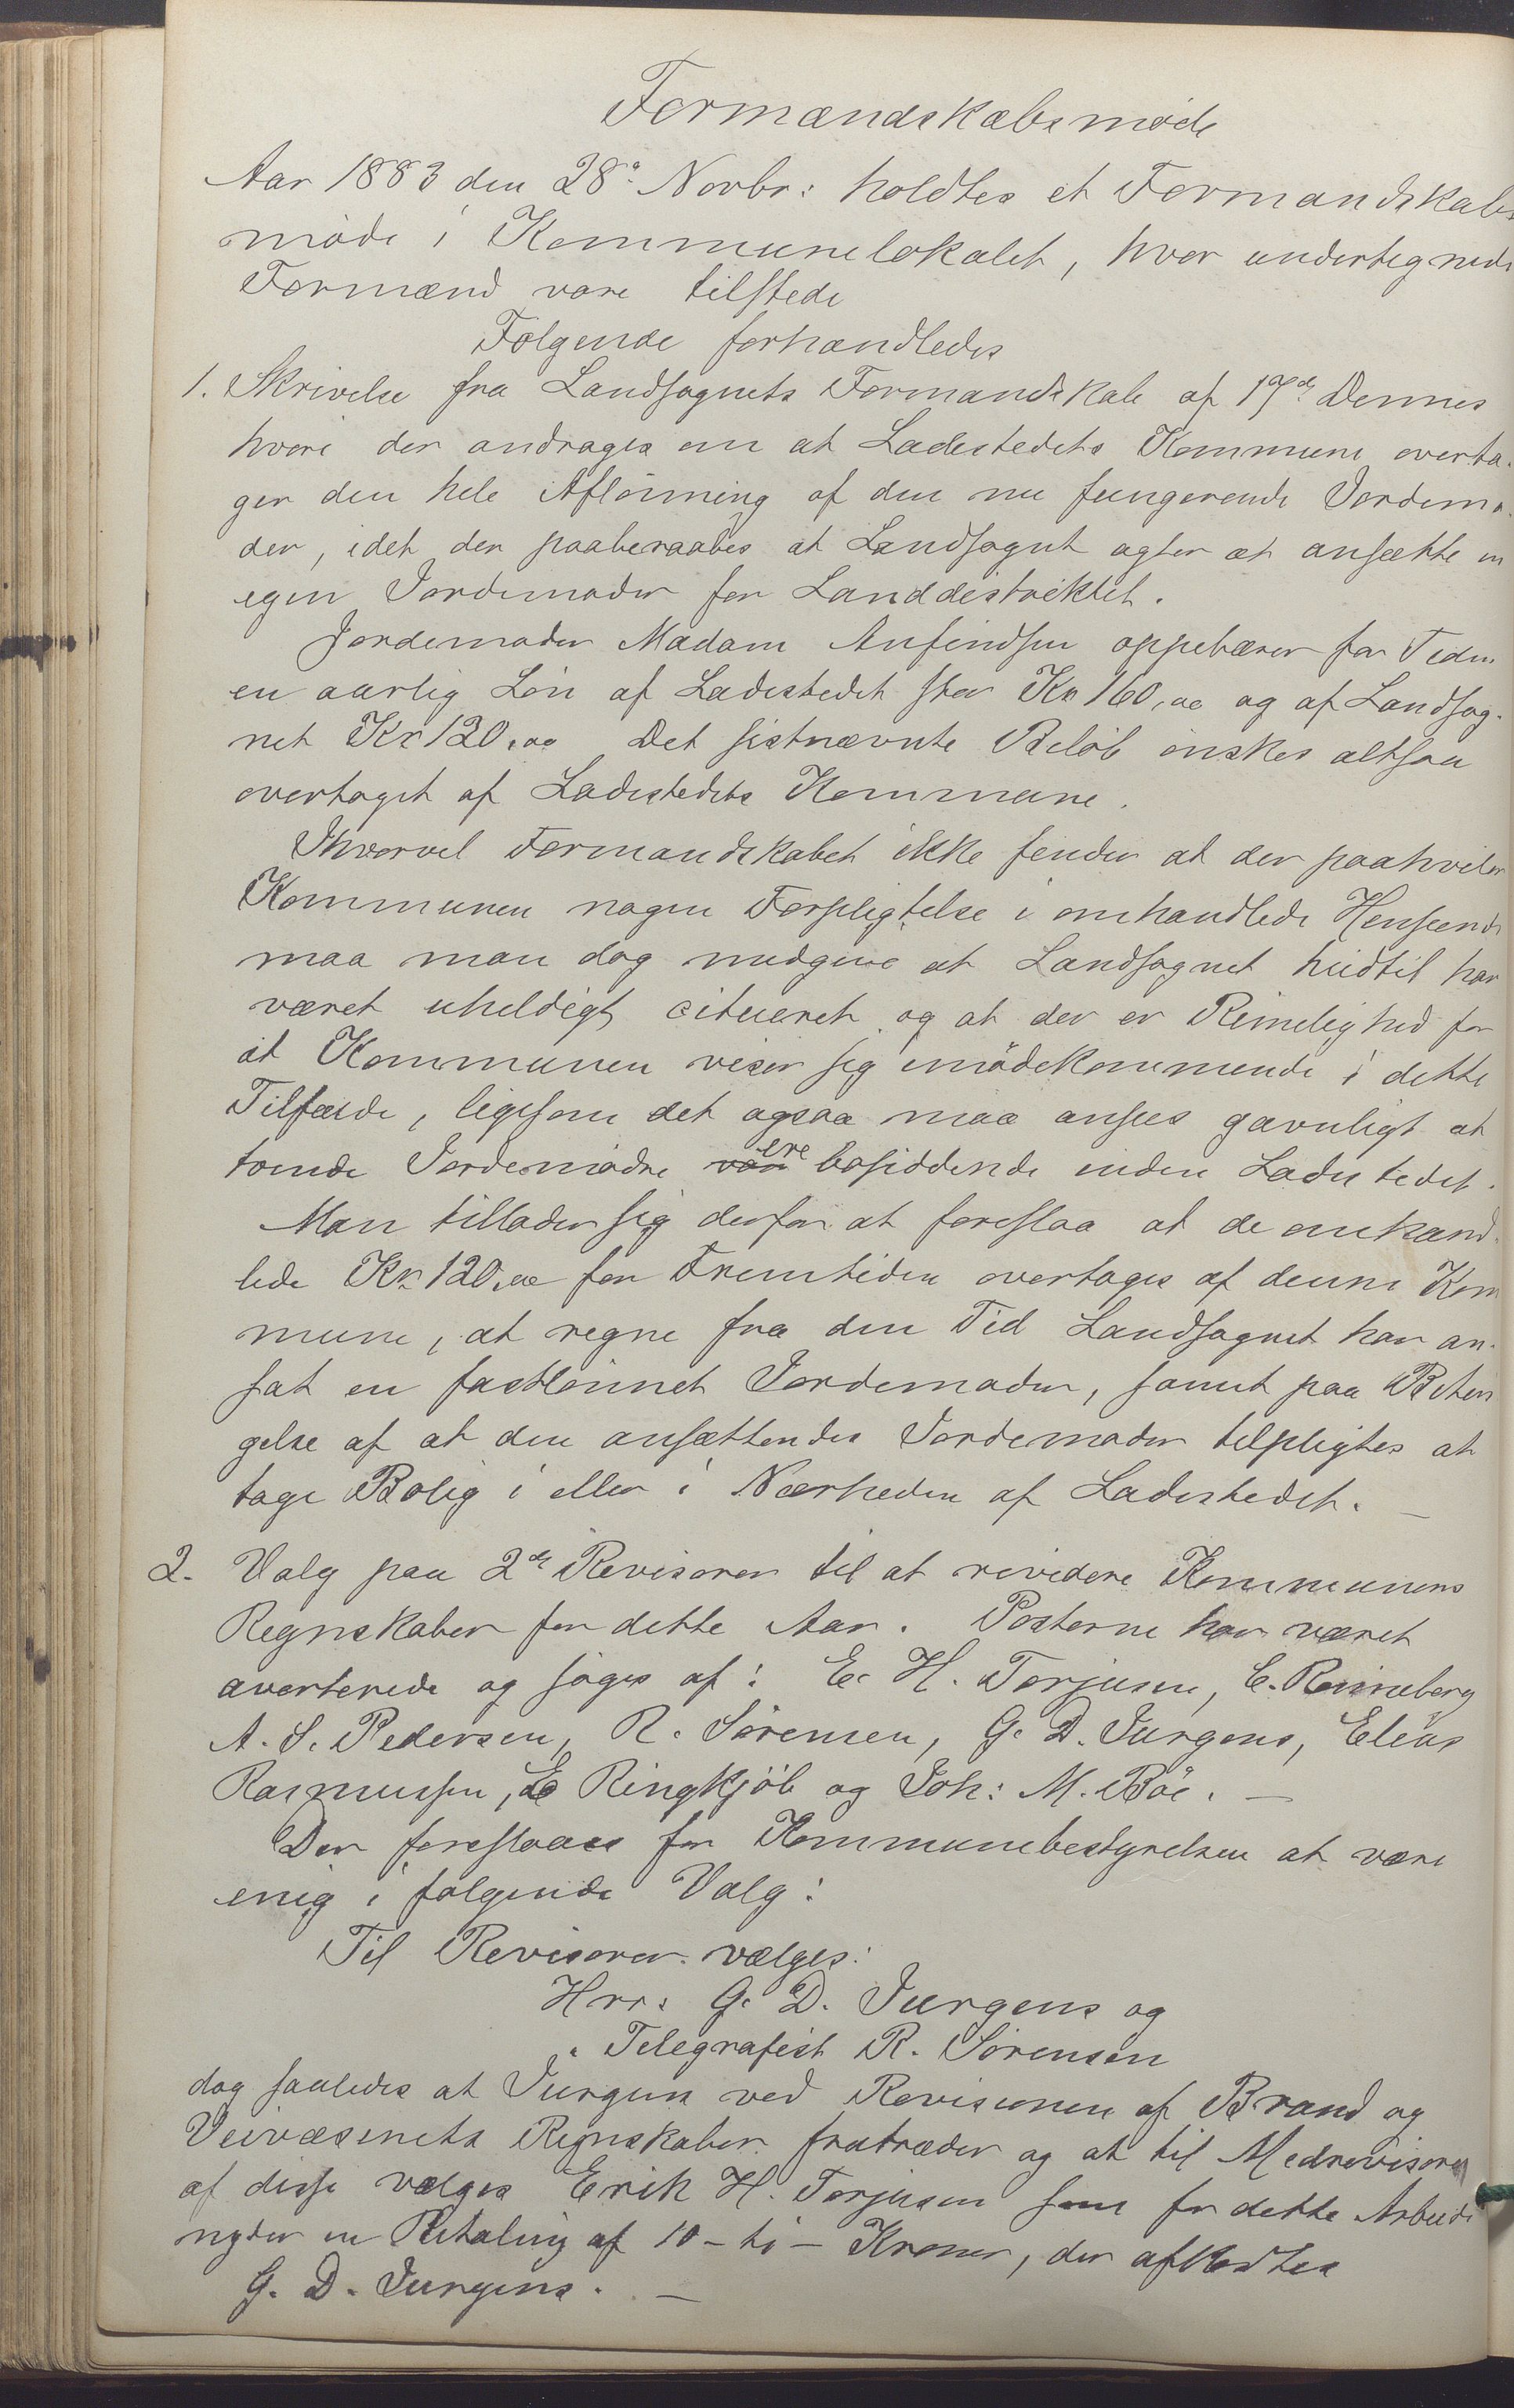 Formandskabsmöde
Aar 1883 den 28de Novbr: holdtes et Formandskabs
möde i Kommunelokalet, hvor undertegnede
Formænd vare tilstede
Følgende forhandledes
1. Skrivelse fra Landsognets Formandskab af 17de Dennes
hvori der andrages om at Ladestedets Kommune overta-
ger den hele Aflönning af den nu fungerende Jordemo-
der, idet der paaberaabes at Landsognet agter at ansætte en
egen Jordemoder for Landdistriktet.
Jordemoder Madam Anfindsen oppebærer for Tiden
en aarlig Lön af Ladestedet stor Kr 160,00 og af Landsog-
net Kr 120,00 Det sistnævnte Belöb önskes altsaa
overtaget af Ladestedets Kommune.
Ihvorvel Formandskabet ikke finder at der paahviler
Kommunen nogen Forpligtelse i omhandlede Henseende
maa man dog medgive at Landsognet hidtil har
været uheldigt citueret og at der er Rimelighed for
at Kommunen viser sig imödekommende i dette
Tilfælde, ligesom det ogsaa maa ansees gavnligt at
tvende Jordemødre vare ere bosiddende inden Ladestedet.
Man tillader sig derfor at foreslaa at de omhand-
lede Kr 120,00 for Fremtiden overtages af denne Kom
mune, at regne fra den Tid Landsognet har an-
sat en fastlönnet Jordemoder, samt paa Betin
gelse af at den ansættendes Jordemoder tilpligtes at
tage Bolig i eller i Nærheden af Ladestedet. —
2. Valg paa 2de Revisorer til at revidere Kommunens
Regnskaber for dette Aar. Posterne har været
averterede og söges af: E. H. Torjusen, C. Rönneberg
A. S. Pedersen, R. Sörensen, G. D. Jürgens, Elias
Rasmussen, E Ringkjöb og Joh: M. Böe. —
Der foreslaaes for Kommunebestyrelsen at være
enig i følgende Valg:
Til Revisorer vælges:
Hrr. G. D. Jürgens og
" Telegrafist R. Sörensen
dog saaledes at Jürgens ved Revisionen af Brand og
Veivæsenets Regnskaber fratræder og at til Medrevisorer
af disse vælges Erik H. Torjusen som for dette Arbeide
nyder en Betaling af 10 - ti - Kroner, der afkortes
G. D. Jürgens. —